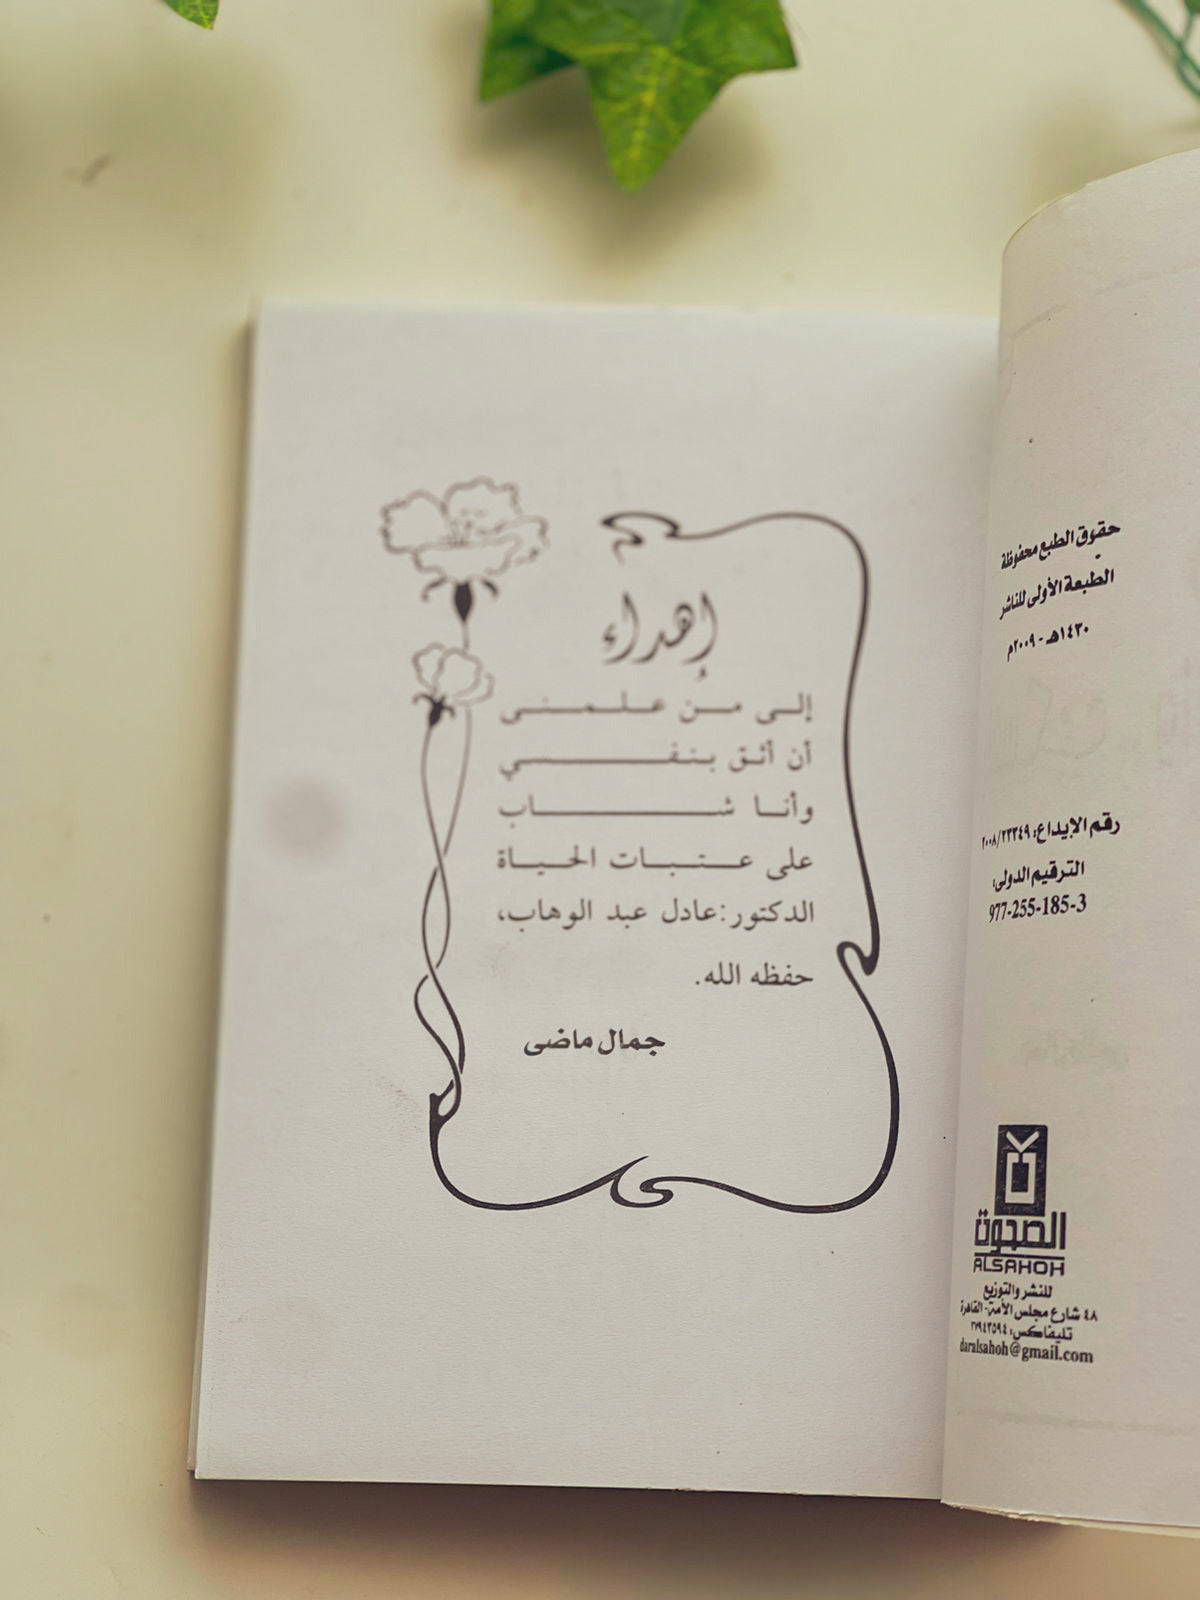 حقوق الطبع محفوظة
الطبعة الأولى للناشر
١٤٣٠هـ - ٢٠٠٩م
رقم الإيداع: ٢٠٠٨/٢٣٣٤٩
الترقيم الدولى:
977-255-185-3
الصحوة
ALSAHOH
للنشر والتوزيع
٤٨ شارع مجلس الأمة- القاهرة
تليفاكس: ٢٧٩٤٣٥٩٤
daralsahoh@gmail.com
إهداء
إلى من علمنى
أن أثق بنفسي
وأنا شاب
على عتبات الحياة
الدكتور:عادل عبد الوهاب،
حفظه الله.
جمال ماضى